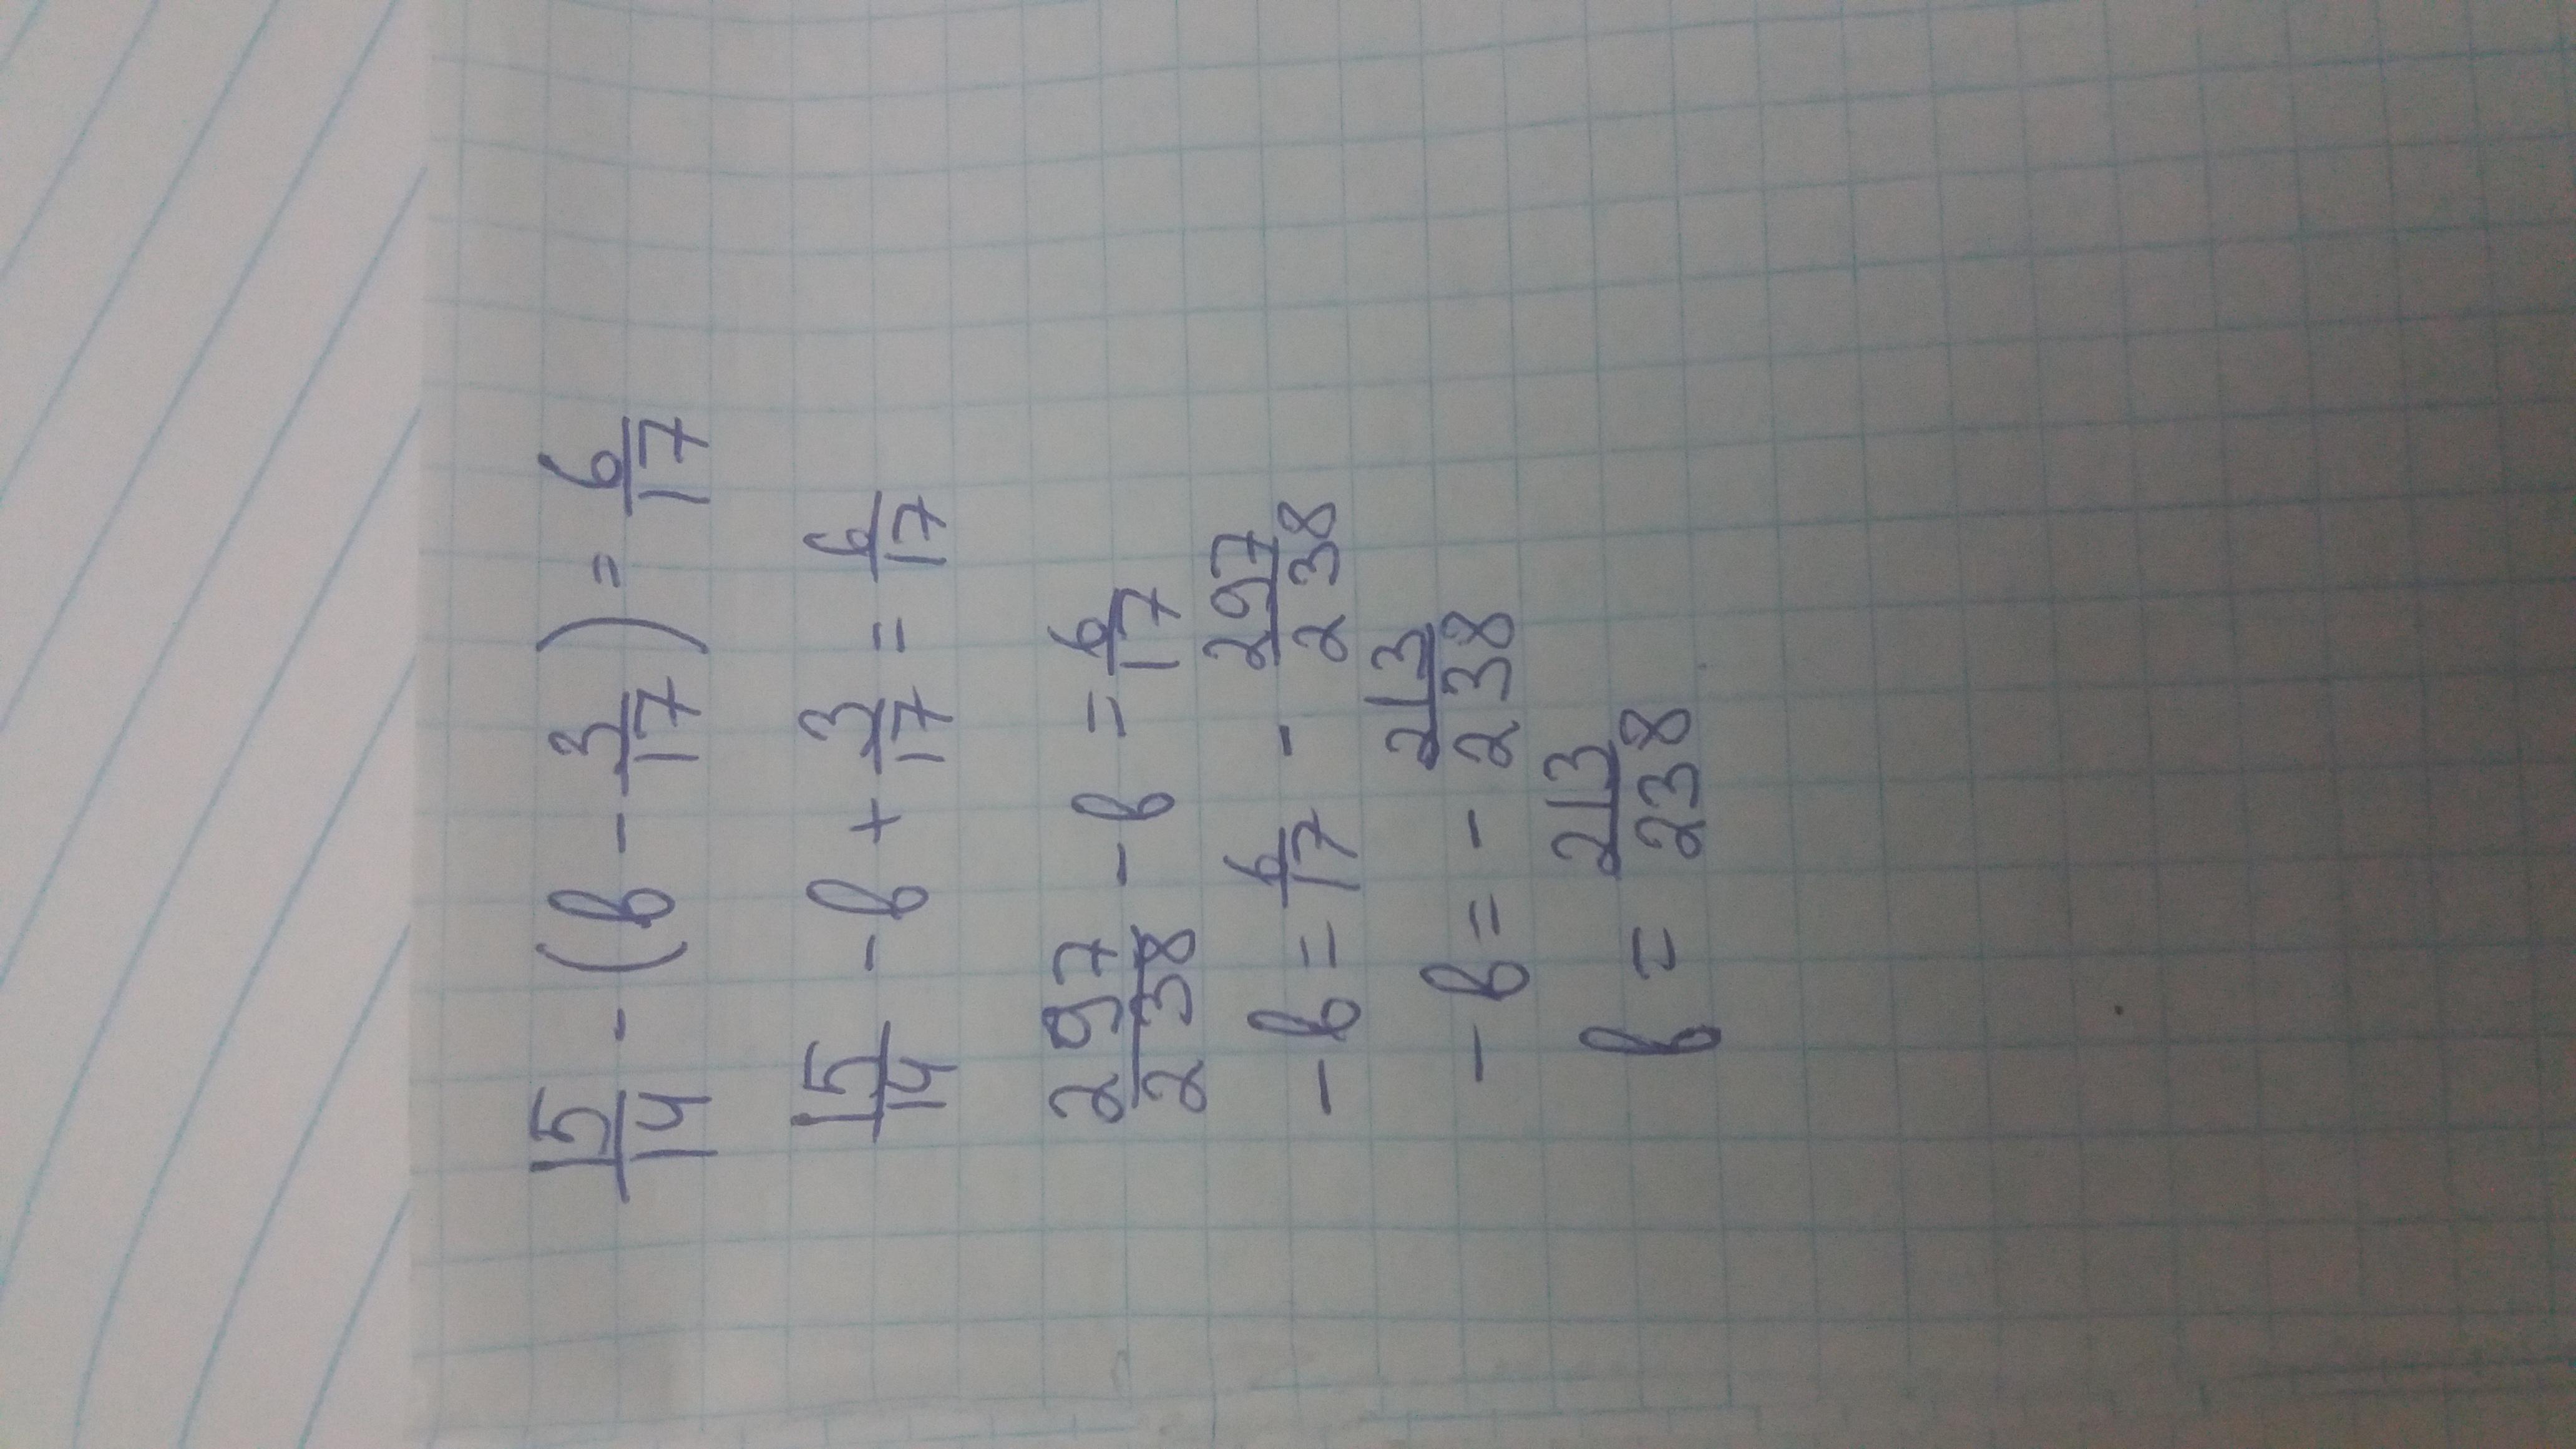 15/14 - (в - 3/17) = 6/17
15/14 - в + 3/17 = 6/17
297/238 - в = 6/17
-в = 6/17 - 297/238
-в = - 213/238
в = 213/238